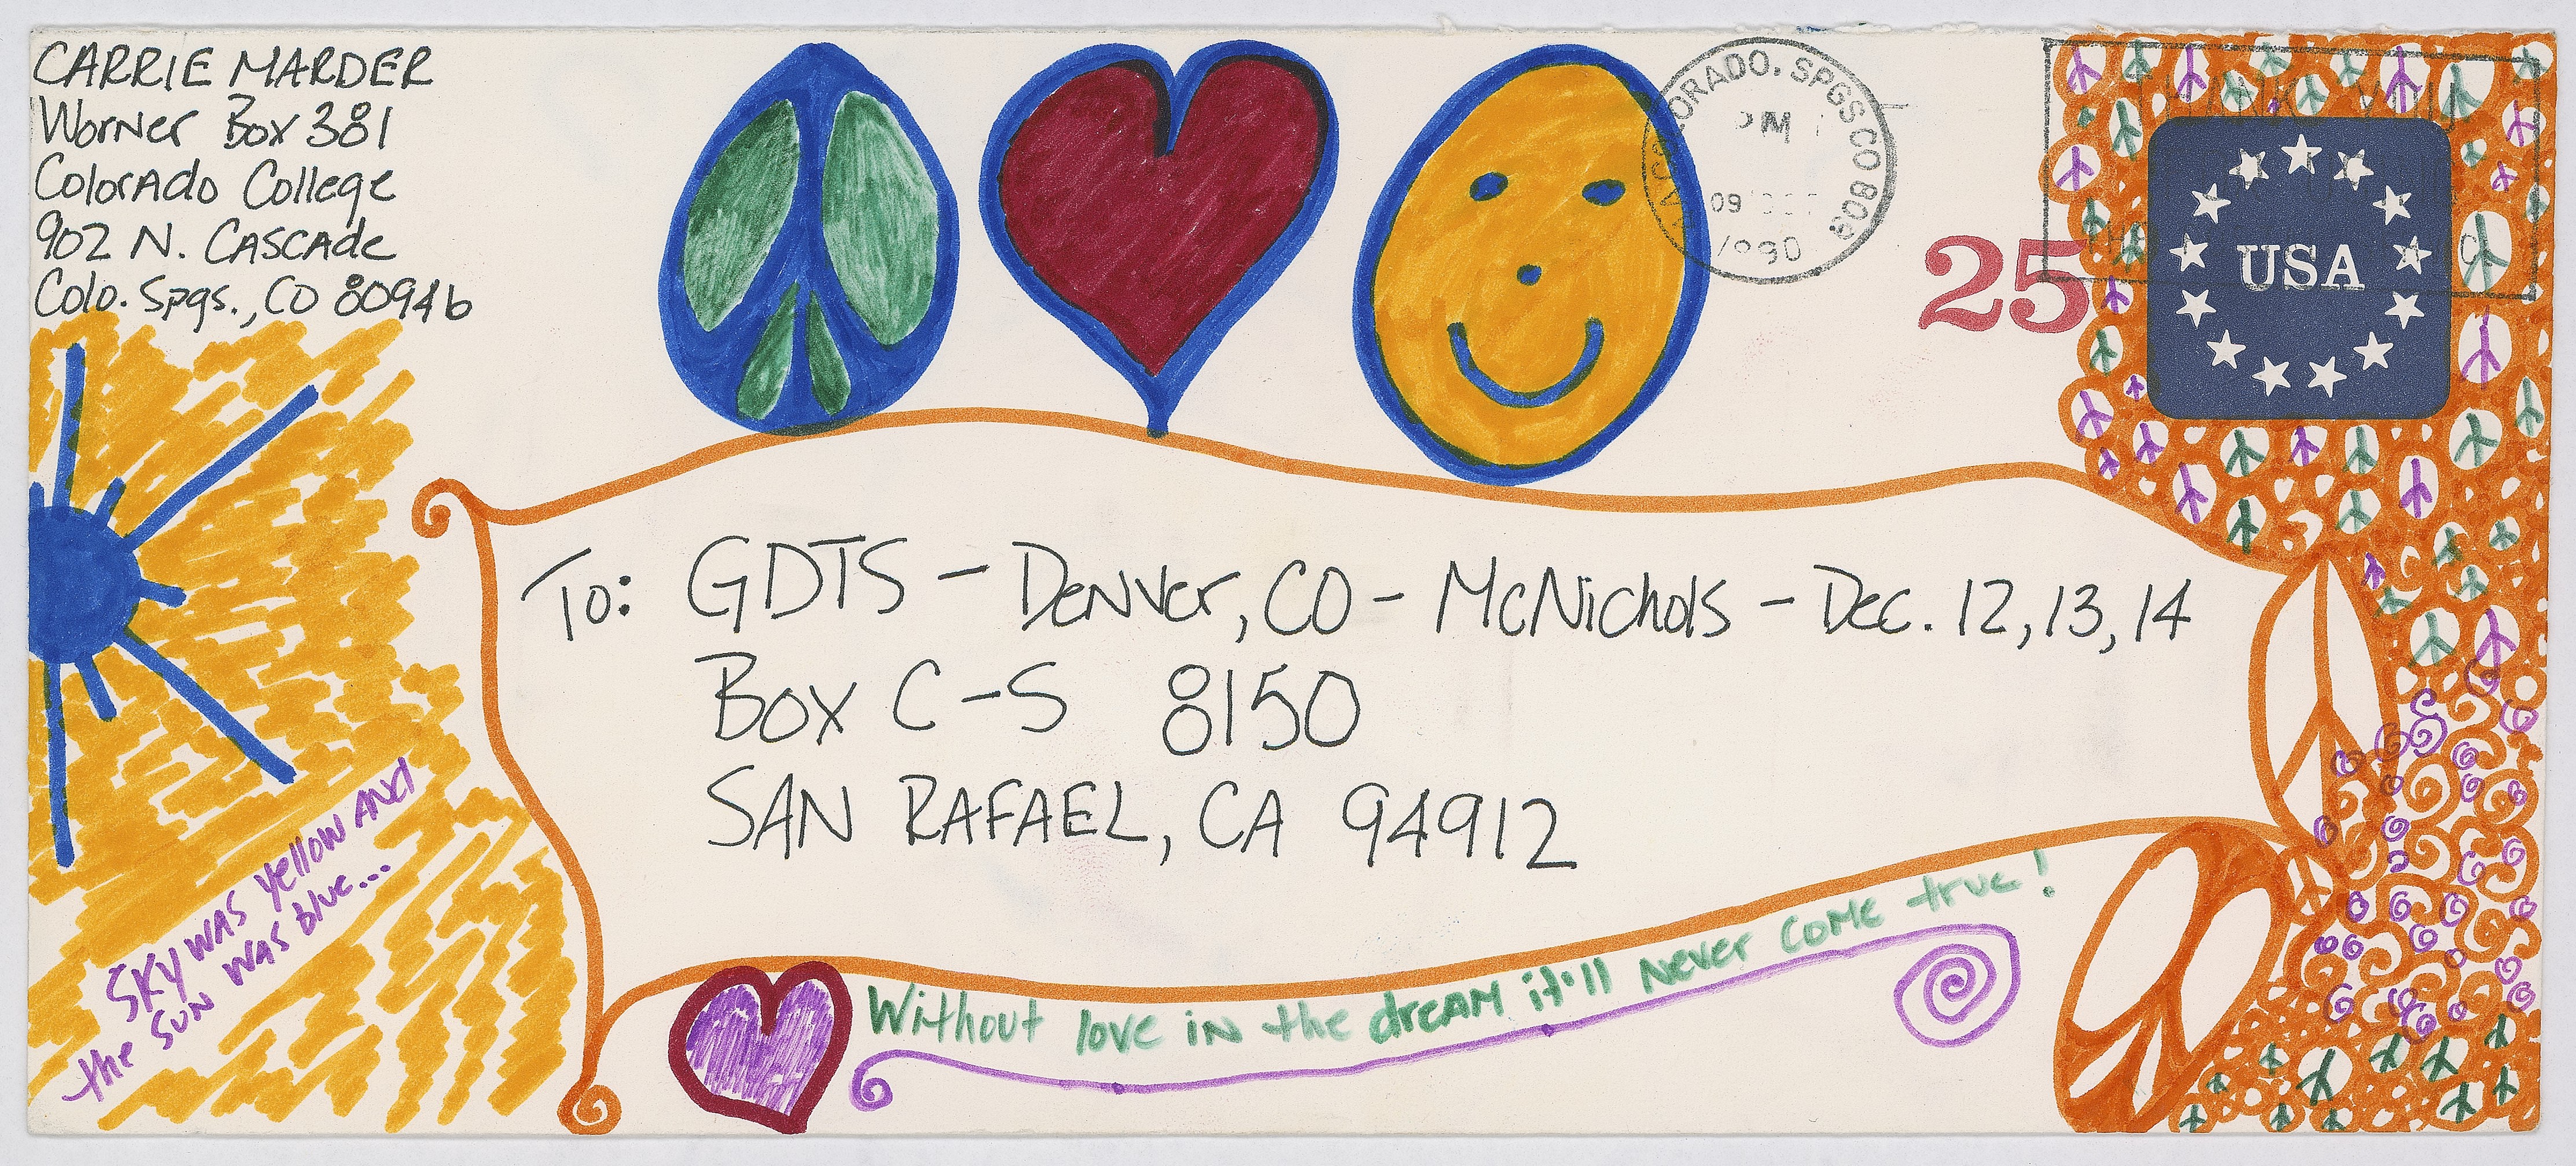 CARRIE MARDER
Worner Box 381
Colorado College
902 N. CASCADE
Colo. Spgs., CO 80946
ORADO. SPGS CO 809
PM
09
1990
THANK YOU
25
USA
To: GDTS - Denver, CO - McNichols - Dec. 12, 13, 14
Box C-S 8150
SAN RAFAEL, CA 94912
SKY WAS yellow AND
the SUN WAS blue...
Without love in the dream it'll never come true!